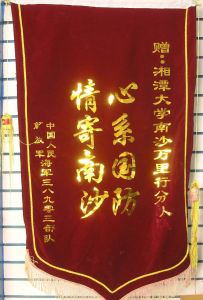 赠：湘潭大学南沙万里行分队
心系国防
情寄南沙
中国人民海军三八九零三部队
解放军